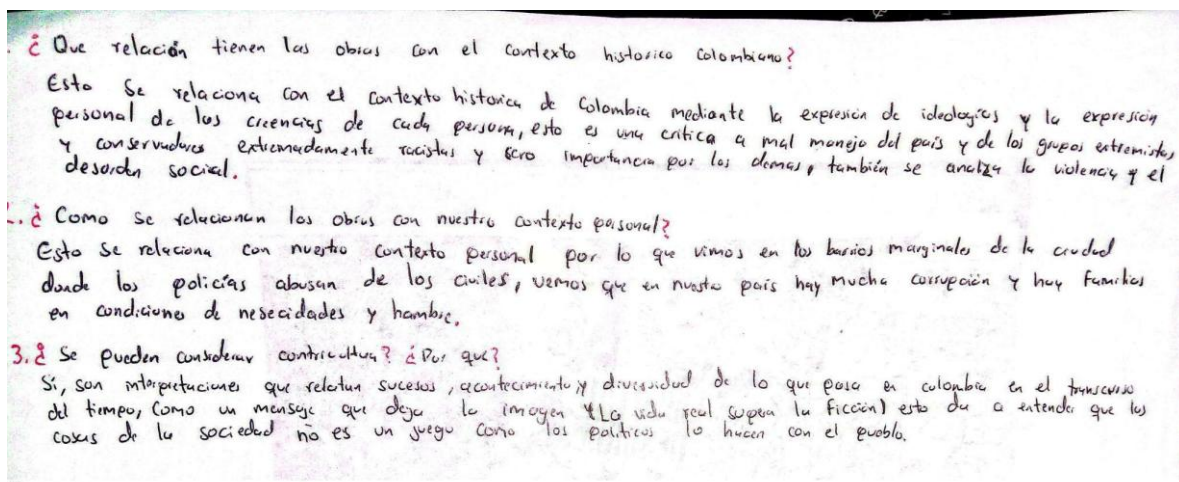 . ¿ Que relación tienen las obras con el contexto historico Colombiano?
Esto Se relaciona con el contexto historico de Colombia mediante la expresión de ideologías y la expresión
personal de las creencias de cada persona, esto es una critica a mal manejo del país y de los grupos extremistas
y conservadores extremadamente racistas y sero importancia por los demas, también se analiza la violencia y el
desorden social.
. ¿ Como se relacionan las obras con nuestro contexto personal?
Esto Se relaciona con nuestro contexto personal por lo que vimos en los barrios marginales de la ciudad
donde los policías abusan de los civiles, vemos que en nuestro país hay mucha corrupción y hay familias
en condiciones de nesecidades y hambre.
3. ¿ Se pueden considerar contricultura? ¿ Por que?
Si, son interpretaciones que relatan sucesos, acontecimiento y diversidad de lo que pasa en colombia en el transcurso
del tiempo, Como un mensaje que deja la imagen (La vida real supera la ficción) esto da a entender que las
cosas de la sociedad no es un juego como los políticos lo hacen con el pueblo.